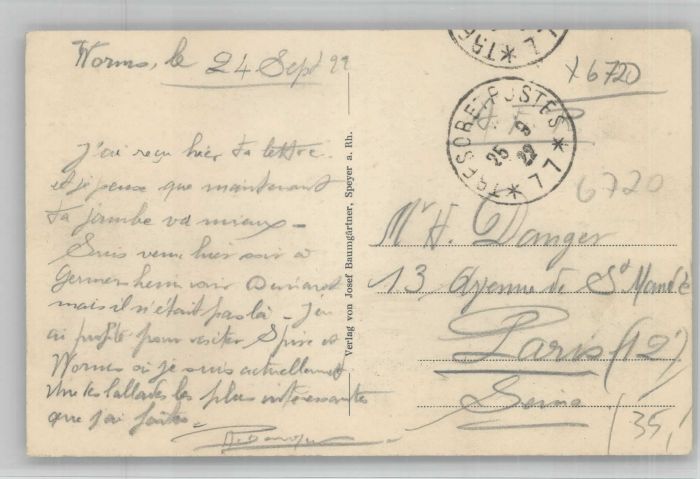 Worms, le 24 Sept 22
J'ai reçu hier ta lettre.
et je pense que maintenant
ta jambe va mieux -
Suis venu hier soir à
Germersheim voir
mais il n'était pas là - J'en
ai profité pour visiter Spire et
Worms où je suis actuellement
une des ballades les plus intéressantes
que j'ai faites.
Verlag von Josef Baumgärtner, Speyer a. Rh.
TRE
7
TRESOR ET POSTES
25 9
22
* 77 *
x 6720
6720
Mr H. Danger
13, Avenue de St Mandé
Paris (12)
Seine
(35,